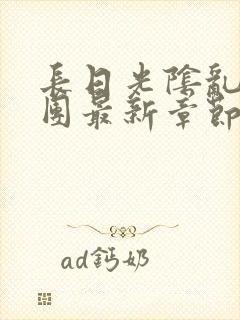 長日光陰亂
團最新章節
ad鈣奶